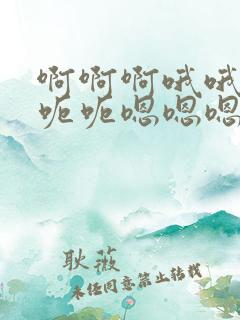 啊啊啊哦哦
呃呃嗯嗯嗯
耿薇
未经同意禁止转载